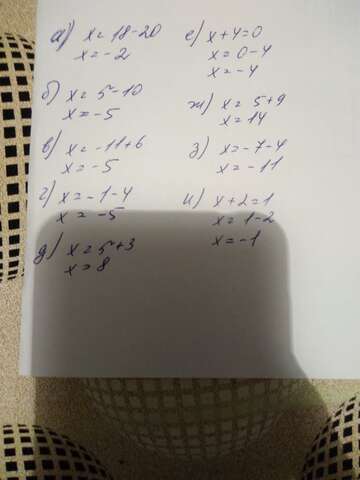 а) x = 18 - 20
x = -2
б) x = 5 - 10
x = -5
в) x = -11 + 6
x = -5
г) x = -1 - 4
x = -5
д) x = 5 + 3
x = 8
е) x + 4 = 0
x = 0 - 4
x = -4
ж) x = 5 + 9
x = 14
з) x = -7 - 4
x = -11
и) x + 2 = 1
x = 1 - 2
x = -1